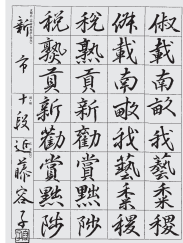 俶載南畝我藝黍稷
俶載南畝我藝黍稷
税熟貢新勸賞黜陟
税熟貢新勸賞黜陟
新市十段近藤容子